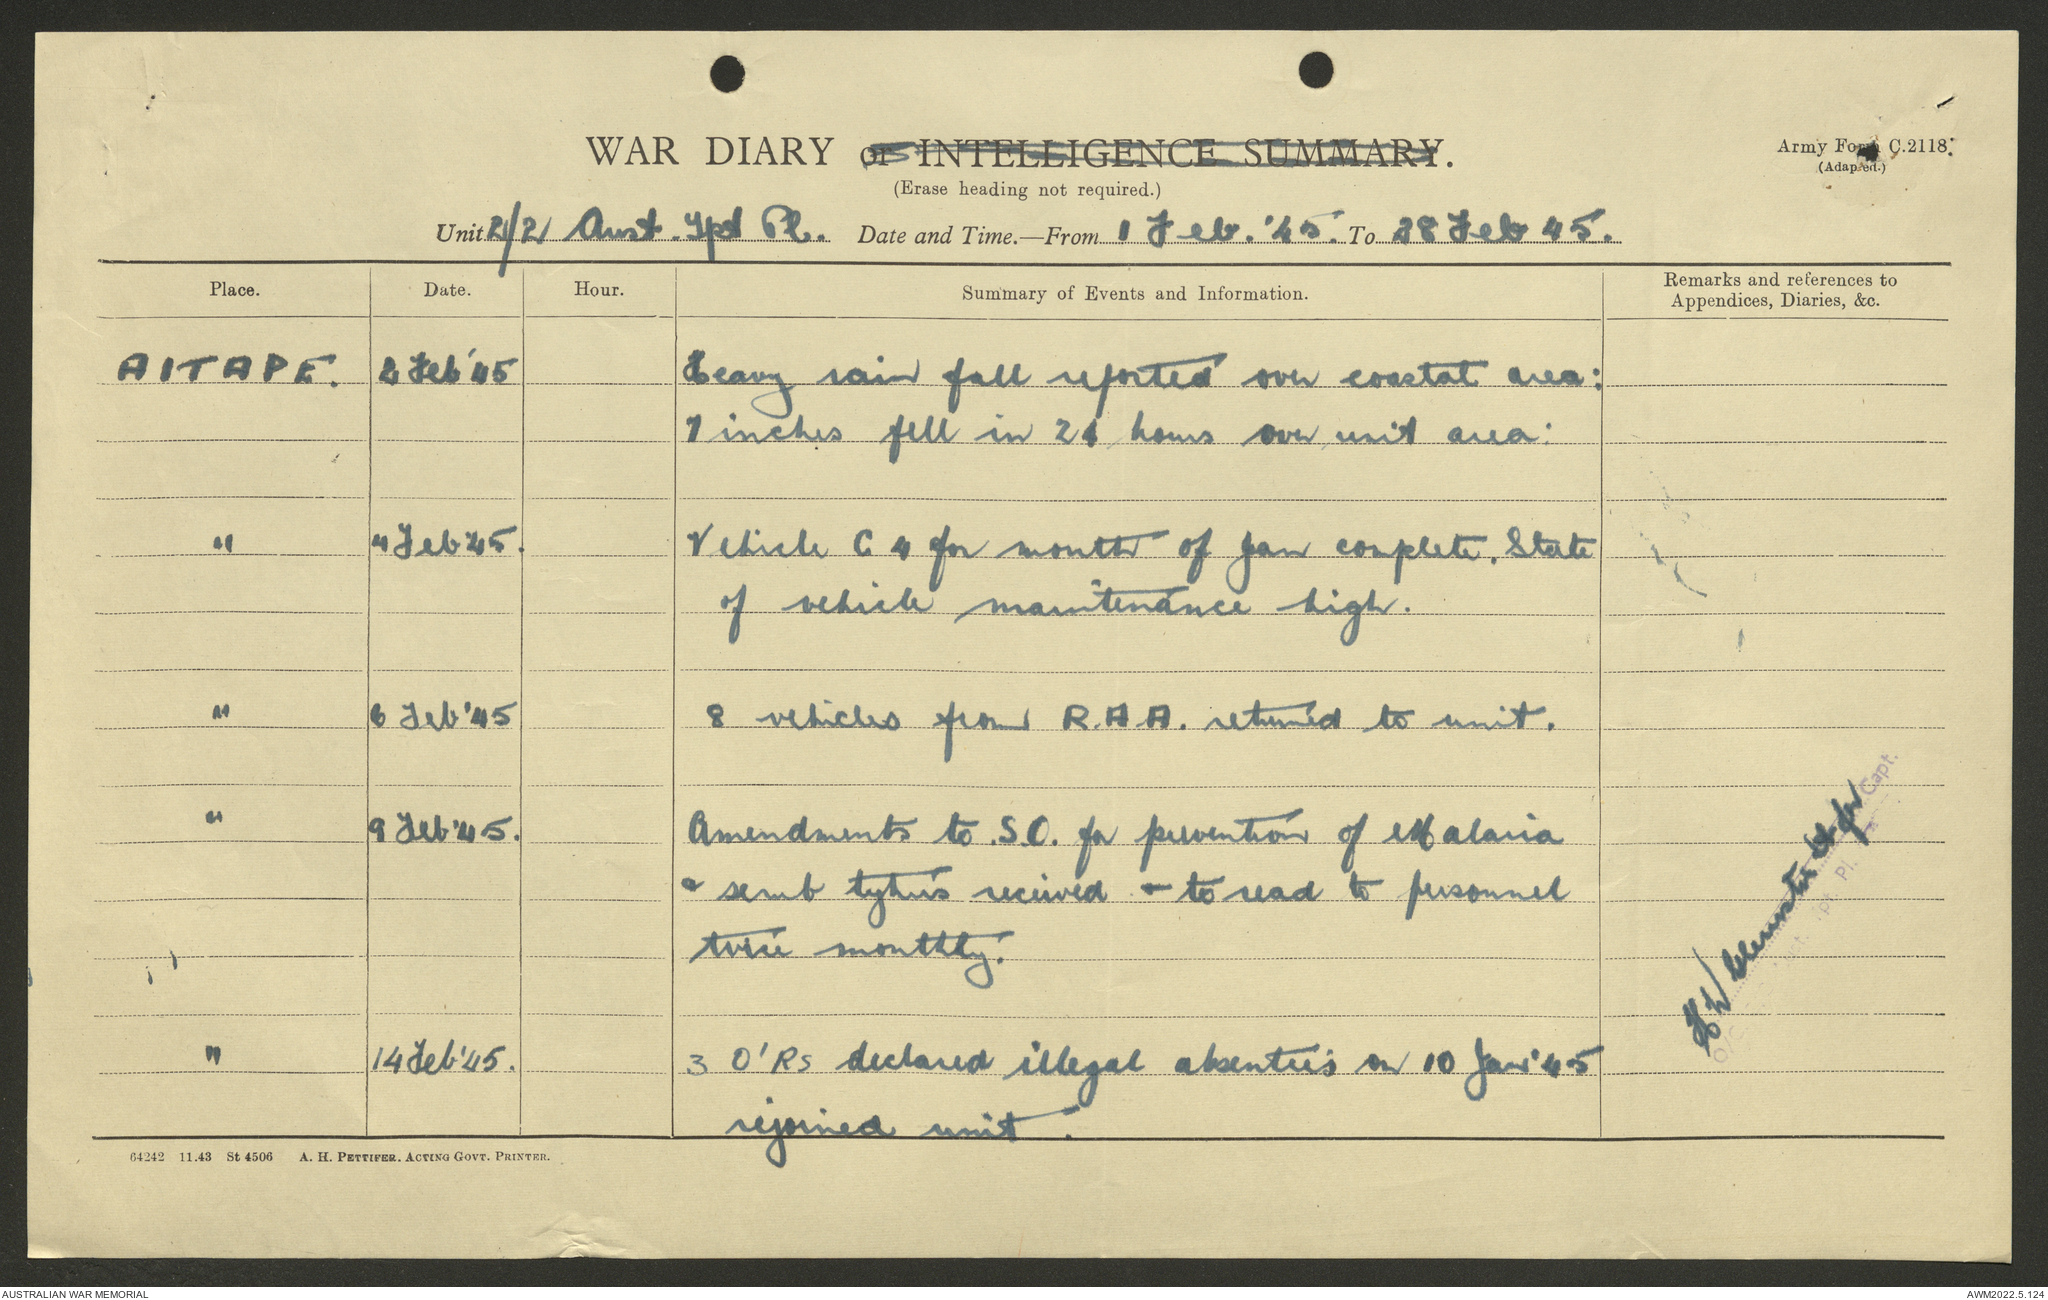 WAR DIARY or INTELLIGENCE SUMMARY.
Army Form C.2118.
(Adapted.)
(Erase heading not required.)
Unit 2/2 Aust. Tpt Pl. Date and Time.—From 1 Feb. '45. To 28 Feb 45.
Place. Date. Hour. Summary of Events and Information. Remarks and references to
Appendices, Diaries, &c.
AITAPE. 2 Feb '45 Heavy rain fall reported over coastal area:
7 inches fell in 24 hours over unit area:
" 4 Feb '45. Vehicle C 4 for month of Jan complete. State
of vehicle maintenance high.
" 6 Feb '45 8 vehicles from R.A.A. returned to unit.
" 9 Feb '45. Amendments to S.O. for prevention of Malaria
& scrub typhus received & to read to personnel
twice monthly.
" 14 Feb '45. 3 O'Rs declared illegal absentees on 10 Jan '45
rejoined unit.
Lt for Capt.
Pl.
64242 11.43 St 4506 A. H. PETTIFER. ACTING GOVT. PRINTER.
AUSTRALIAN WAR MEMORIAL
AWM2022.5.124